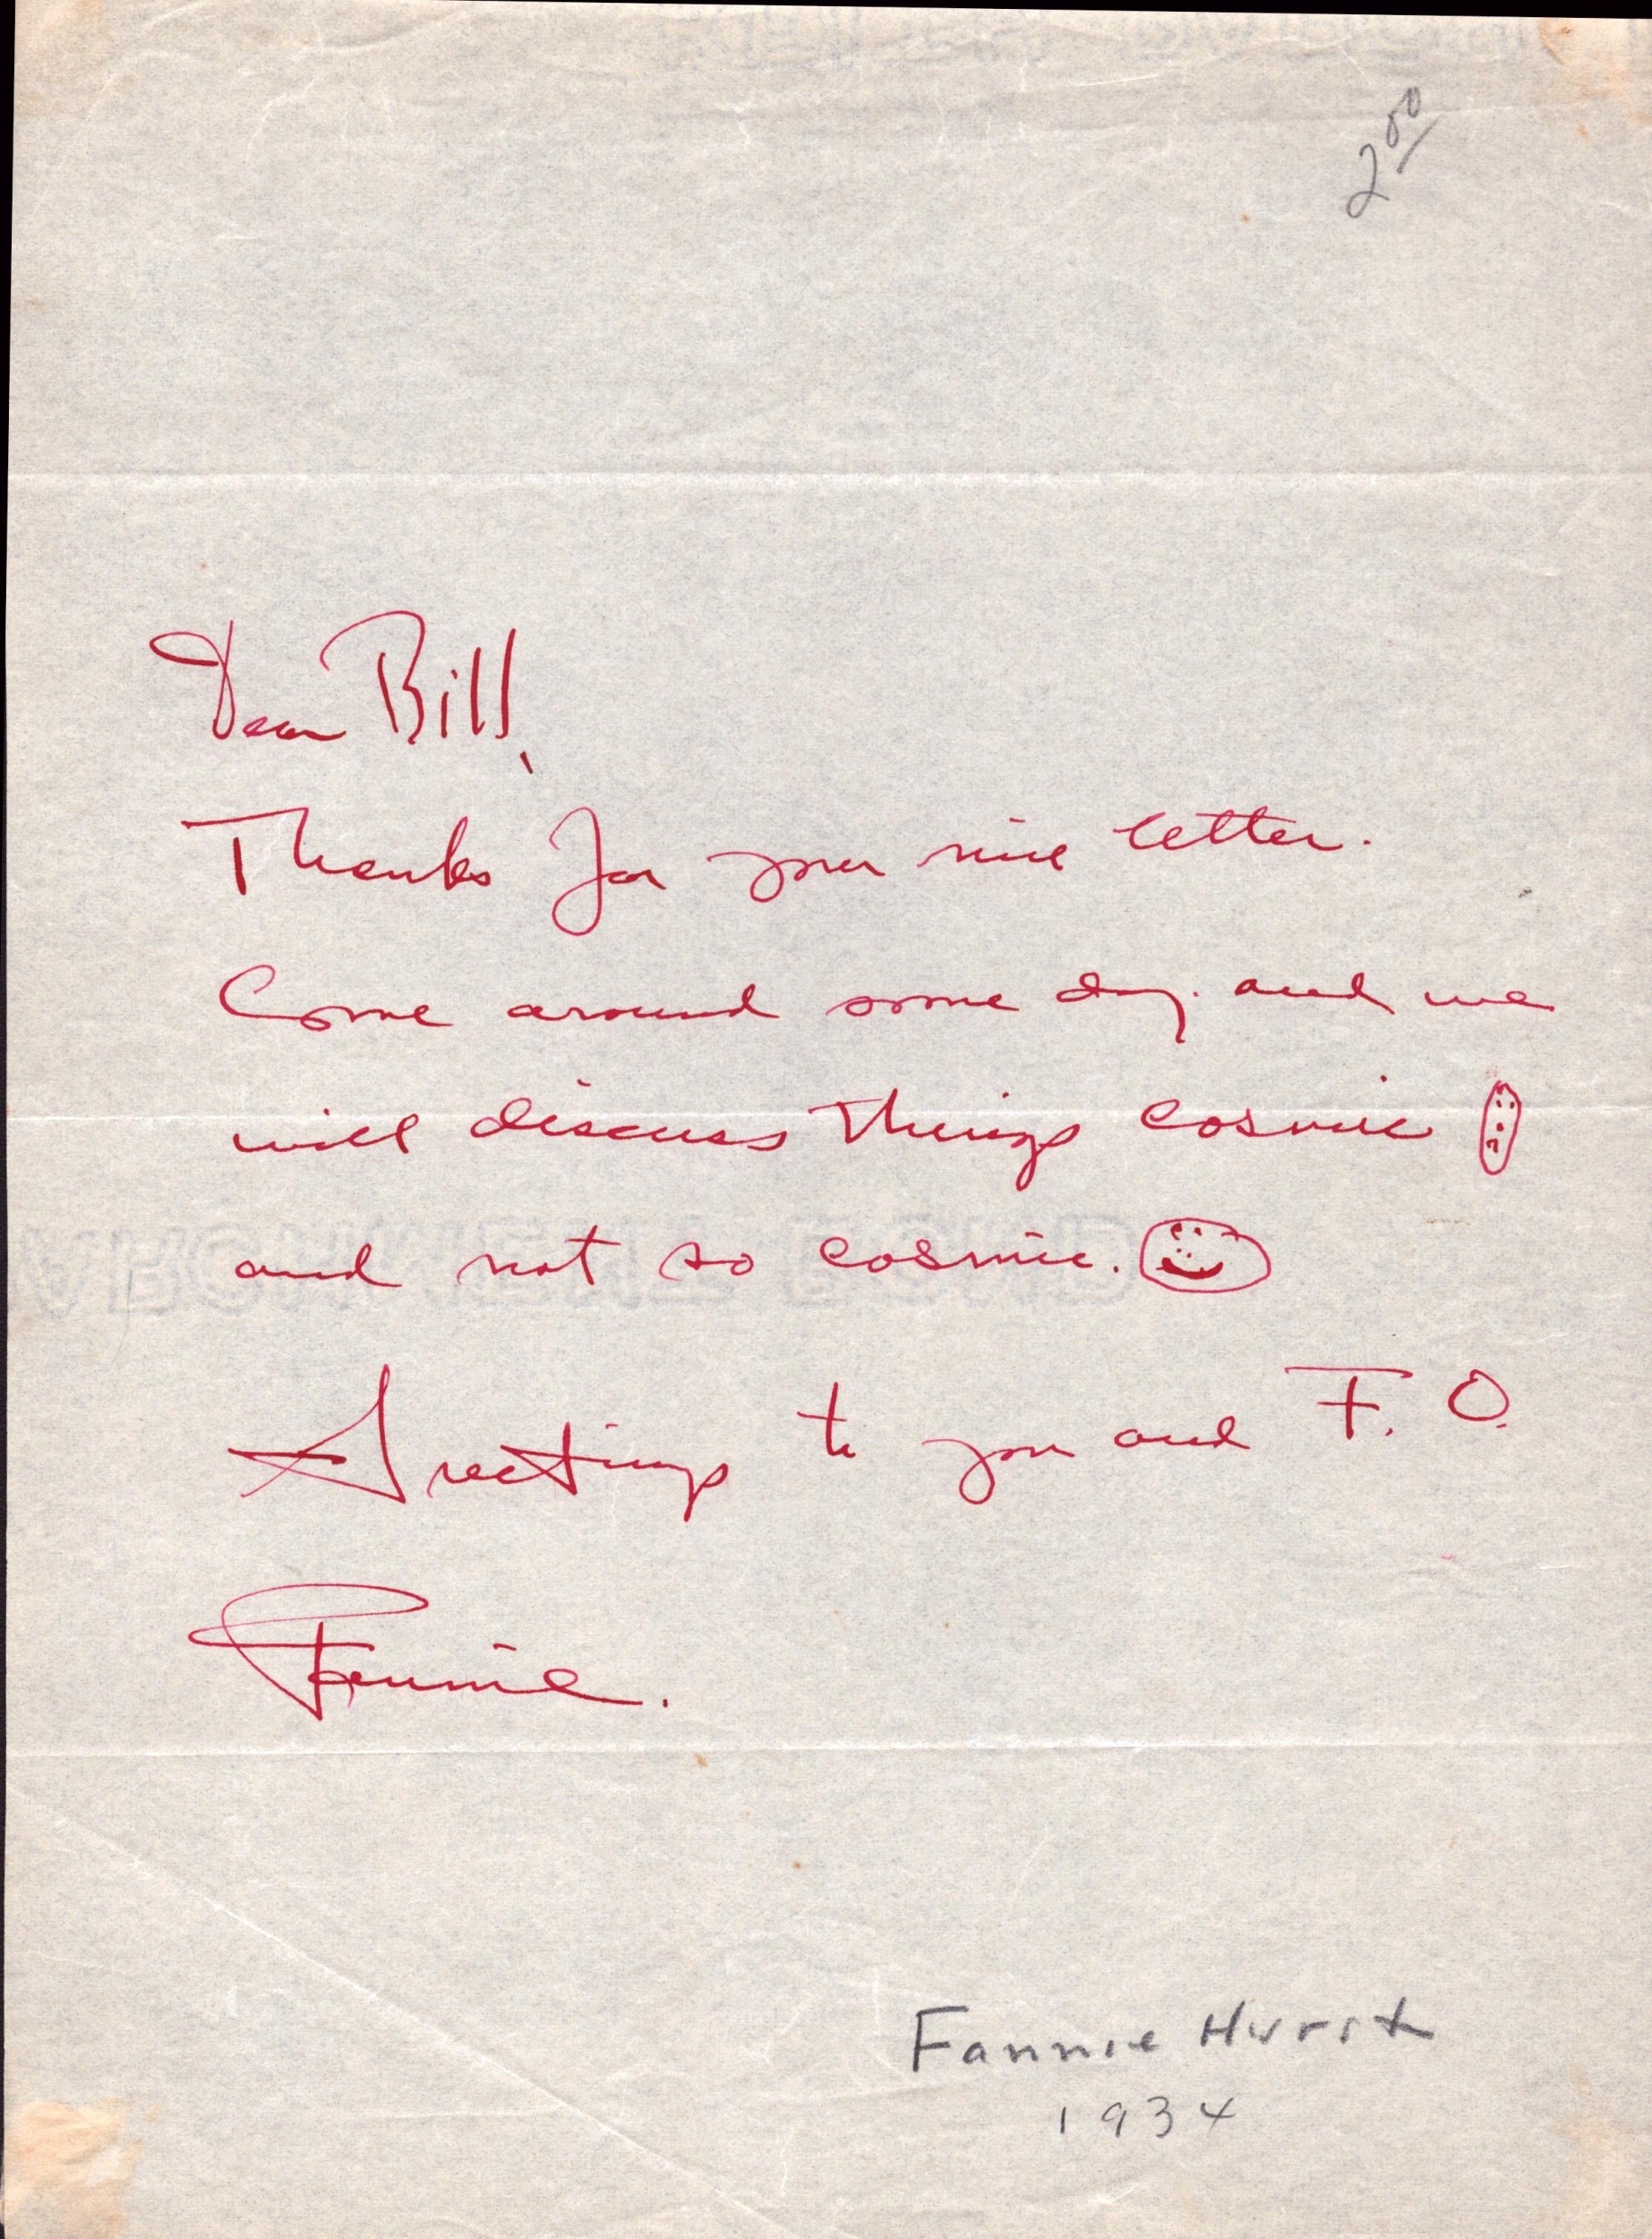 2.00
Dear Bill,
Thanks for your nice letter.
Come around some day and we
will discuss things cosmic
and not so cosmic.
Greetings to you and F. O.
Fannie.
Fannie Hurst
1934